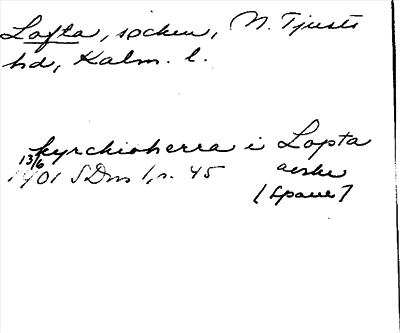 Lofta, socken, N. Tjusts
hd, Kalm. l.
kyrchioherra i Lopta
13/6 1401 SDns 1, s. 45 avskr
[Spaue]